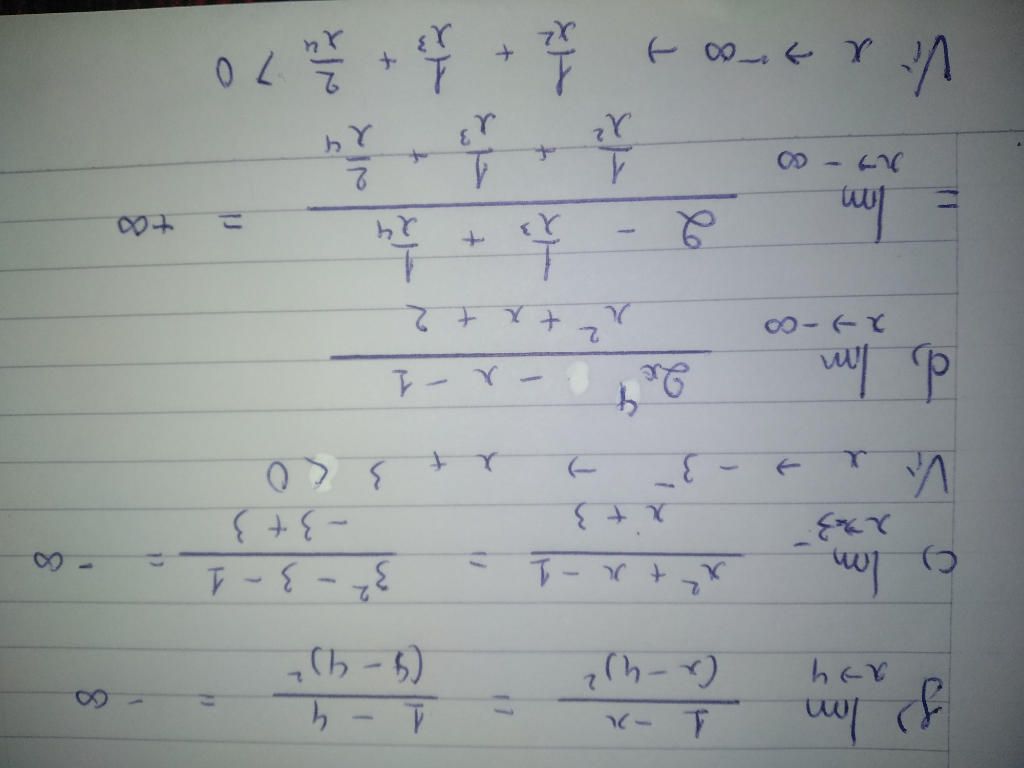 b) lim x→4 (1 - x)/(x - 4)² = (1 - 4)/(4 - 4)² = - ∞
c) lim x→-3⁻ (x² + x - 1)/(x + 3) = (3² - 3 - 1)/(- 3 + 3) = - ∞
Vì x → - 3⁻ → x + 3 < 0
d, lim x→-∞ (2x⁴ - x - 1)/(x² + x + 2)
= lim x→-∞ (2 - 1/x³ + 1/x⁴)/(1/x² + 1/x³ + 2/x⁴) = +∞
Vì x → -∞ → 1/x² + 1/x³ + 2/x⁴ > 0